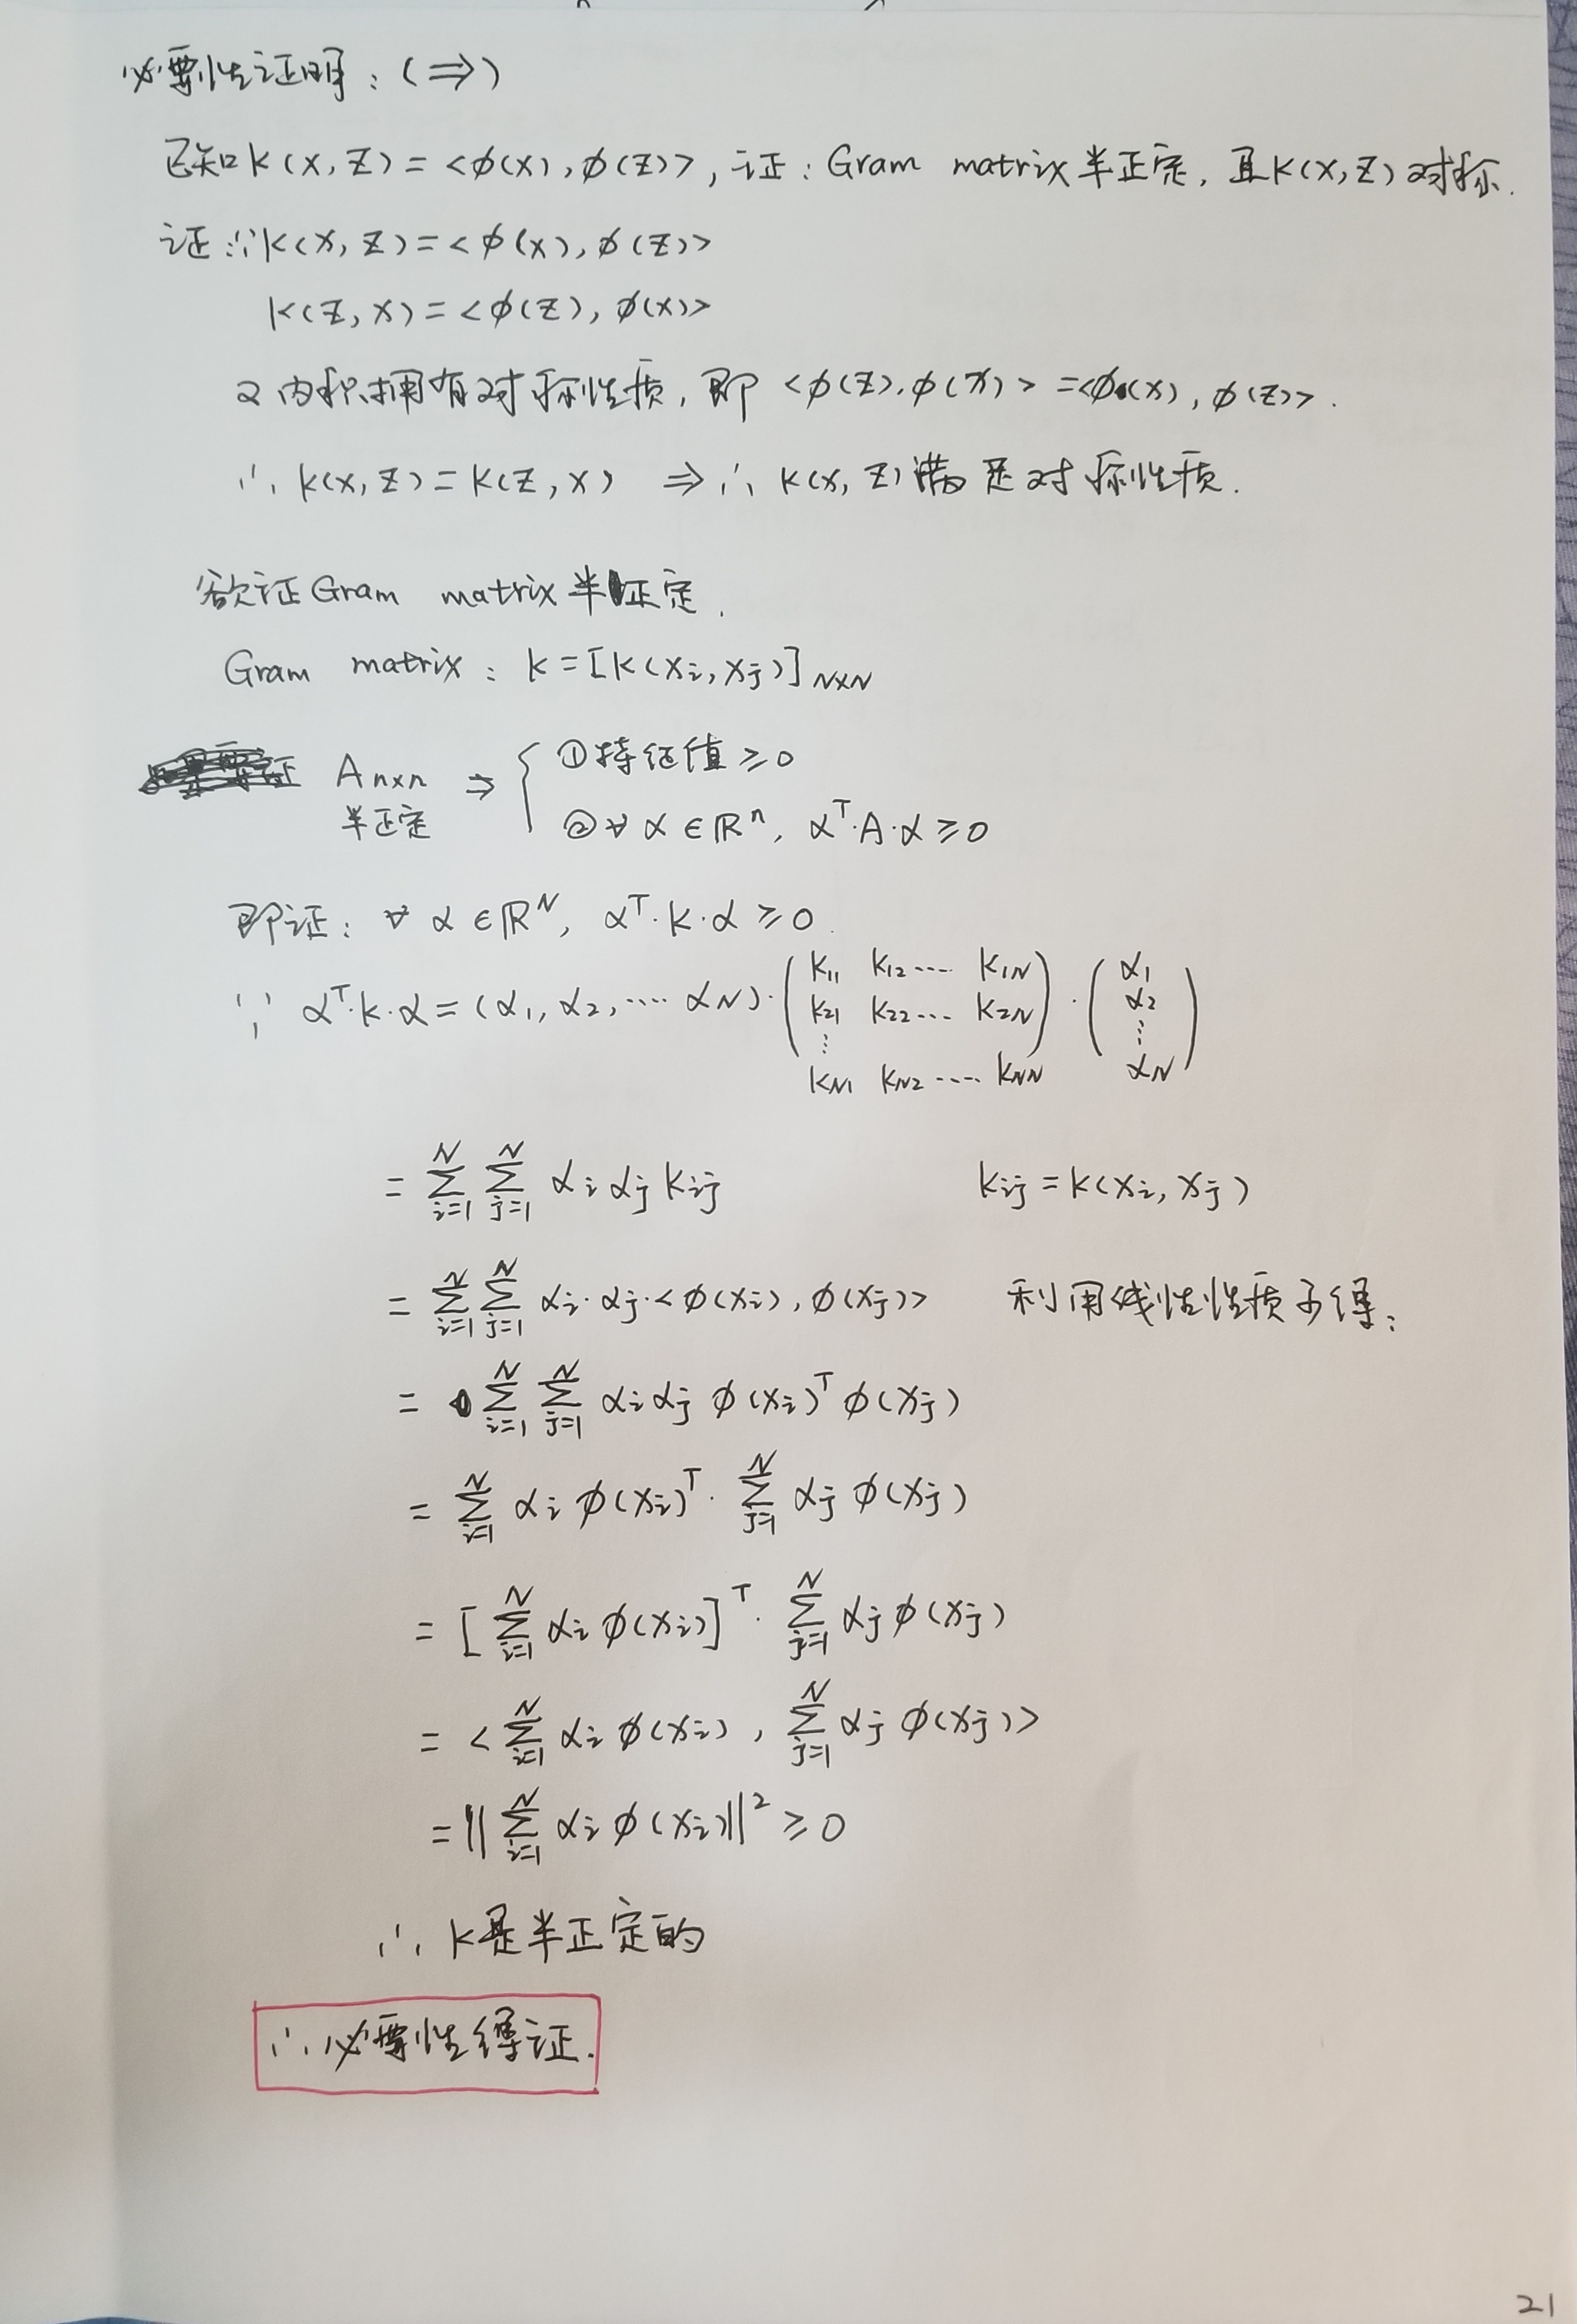 必要性证明：(⇒)
已知 K(x, z) = <ϕ(x), ϕ(z)>, 证: Gram matrix 半正定, 且 K(x, z) 对称.
证: ∵ K(x, z) = <ϕ(x), ϕ(z)>
K(z, x) = <ϕ(z), ϕ(x)>
又内积拥有对称性质, 即 <ϕ(z), ϕ(x)> = <ϕ(x), ϕ(z)>.
∴ K(x, z) = K(z, x) ⇒ ∴ K(x, z) 满足对称性质.
欲证 Gram matrix 半正定.
Gram matrix: K = [K(xᵢ, xⱼ)]N×N
Aₙ×ₙ 半正定 ⇒ { ① 特征值 ≥ 0
② ∀ α ∈ ℝⁿ, αᵀ·A·α ≥ 0
即证: ∀ α ∈ ℝᴺ, αᵀ·K·α ≥ 0.
∵ αᵀ·K·α = (α₁, α₂, ···· αN)·(K₁₁ K₁₂ ···· K₁N
K₂₁ K₂₂ ··· K₂N
⋮
KN₁ KN₂ ···· KNN)·(α₁
α₂
⋮
αN)
= ∑ᵢ₌₁ᴺ ∑ⱼ₌₁ᴺ αᵢ αⱼ Kᵢⱼ Kᵢⱼ = K(xᵢ, xⱼ)
= ∑ᵢ₌₁ᴺ ∑ⱼ₌₁ᴺ αᵢ·αⱼ·<ϕ(xᵢ), ϕ(xⱼ)> 利用线性性质可得:
= ∑ᵢ₌₁ᴺ ∑ⱼ₌₁ᴺ αᵢ αⱼ ϕ(xᵢ)ᵀ ϕ(xⱼ)
= ∑ᵢ₌₁ᴺ αᵢ ϕ(xᵢ)ᵀ · ∑ⱼ₌₁ᴺ αⱼ ϕ(xⱼ)
= [∑ᵢ₌₁ᴺ αᵢ ϕ(xᵢ)]ᵀ · ∑ⱼ₌₁ᴺ αⱼ ϕ(xⱼ)
= <∑ᵢ₌₁ᴺ αᵢ ϕ(xᵢ), ∑ⱼ₌₁ᴺ αⱼ ϕ(xⱼ)>
= ||∑ᵢ₌₁ᴺ αᵢ ϕ(xᵢ)||² ≥ 0
∴ K是半正定的
∴ 必要性得证.
21